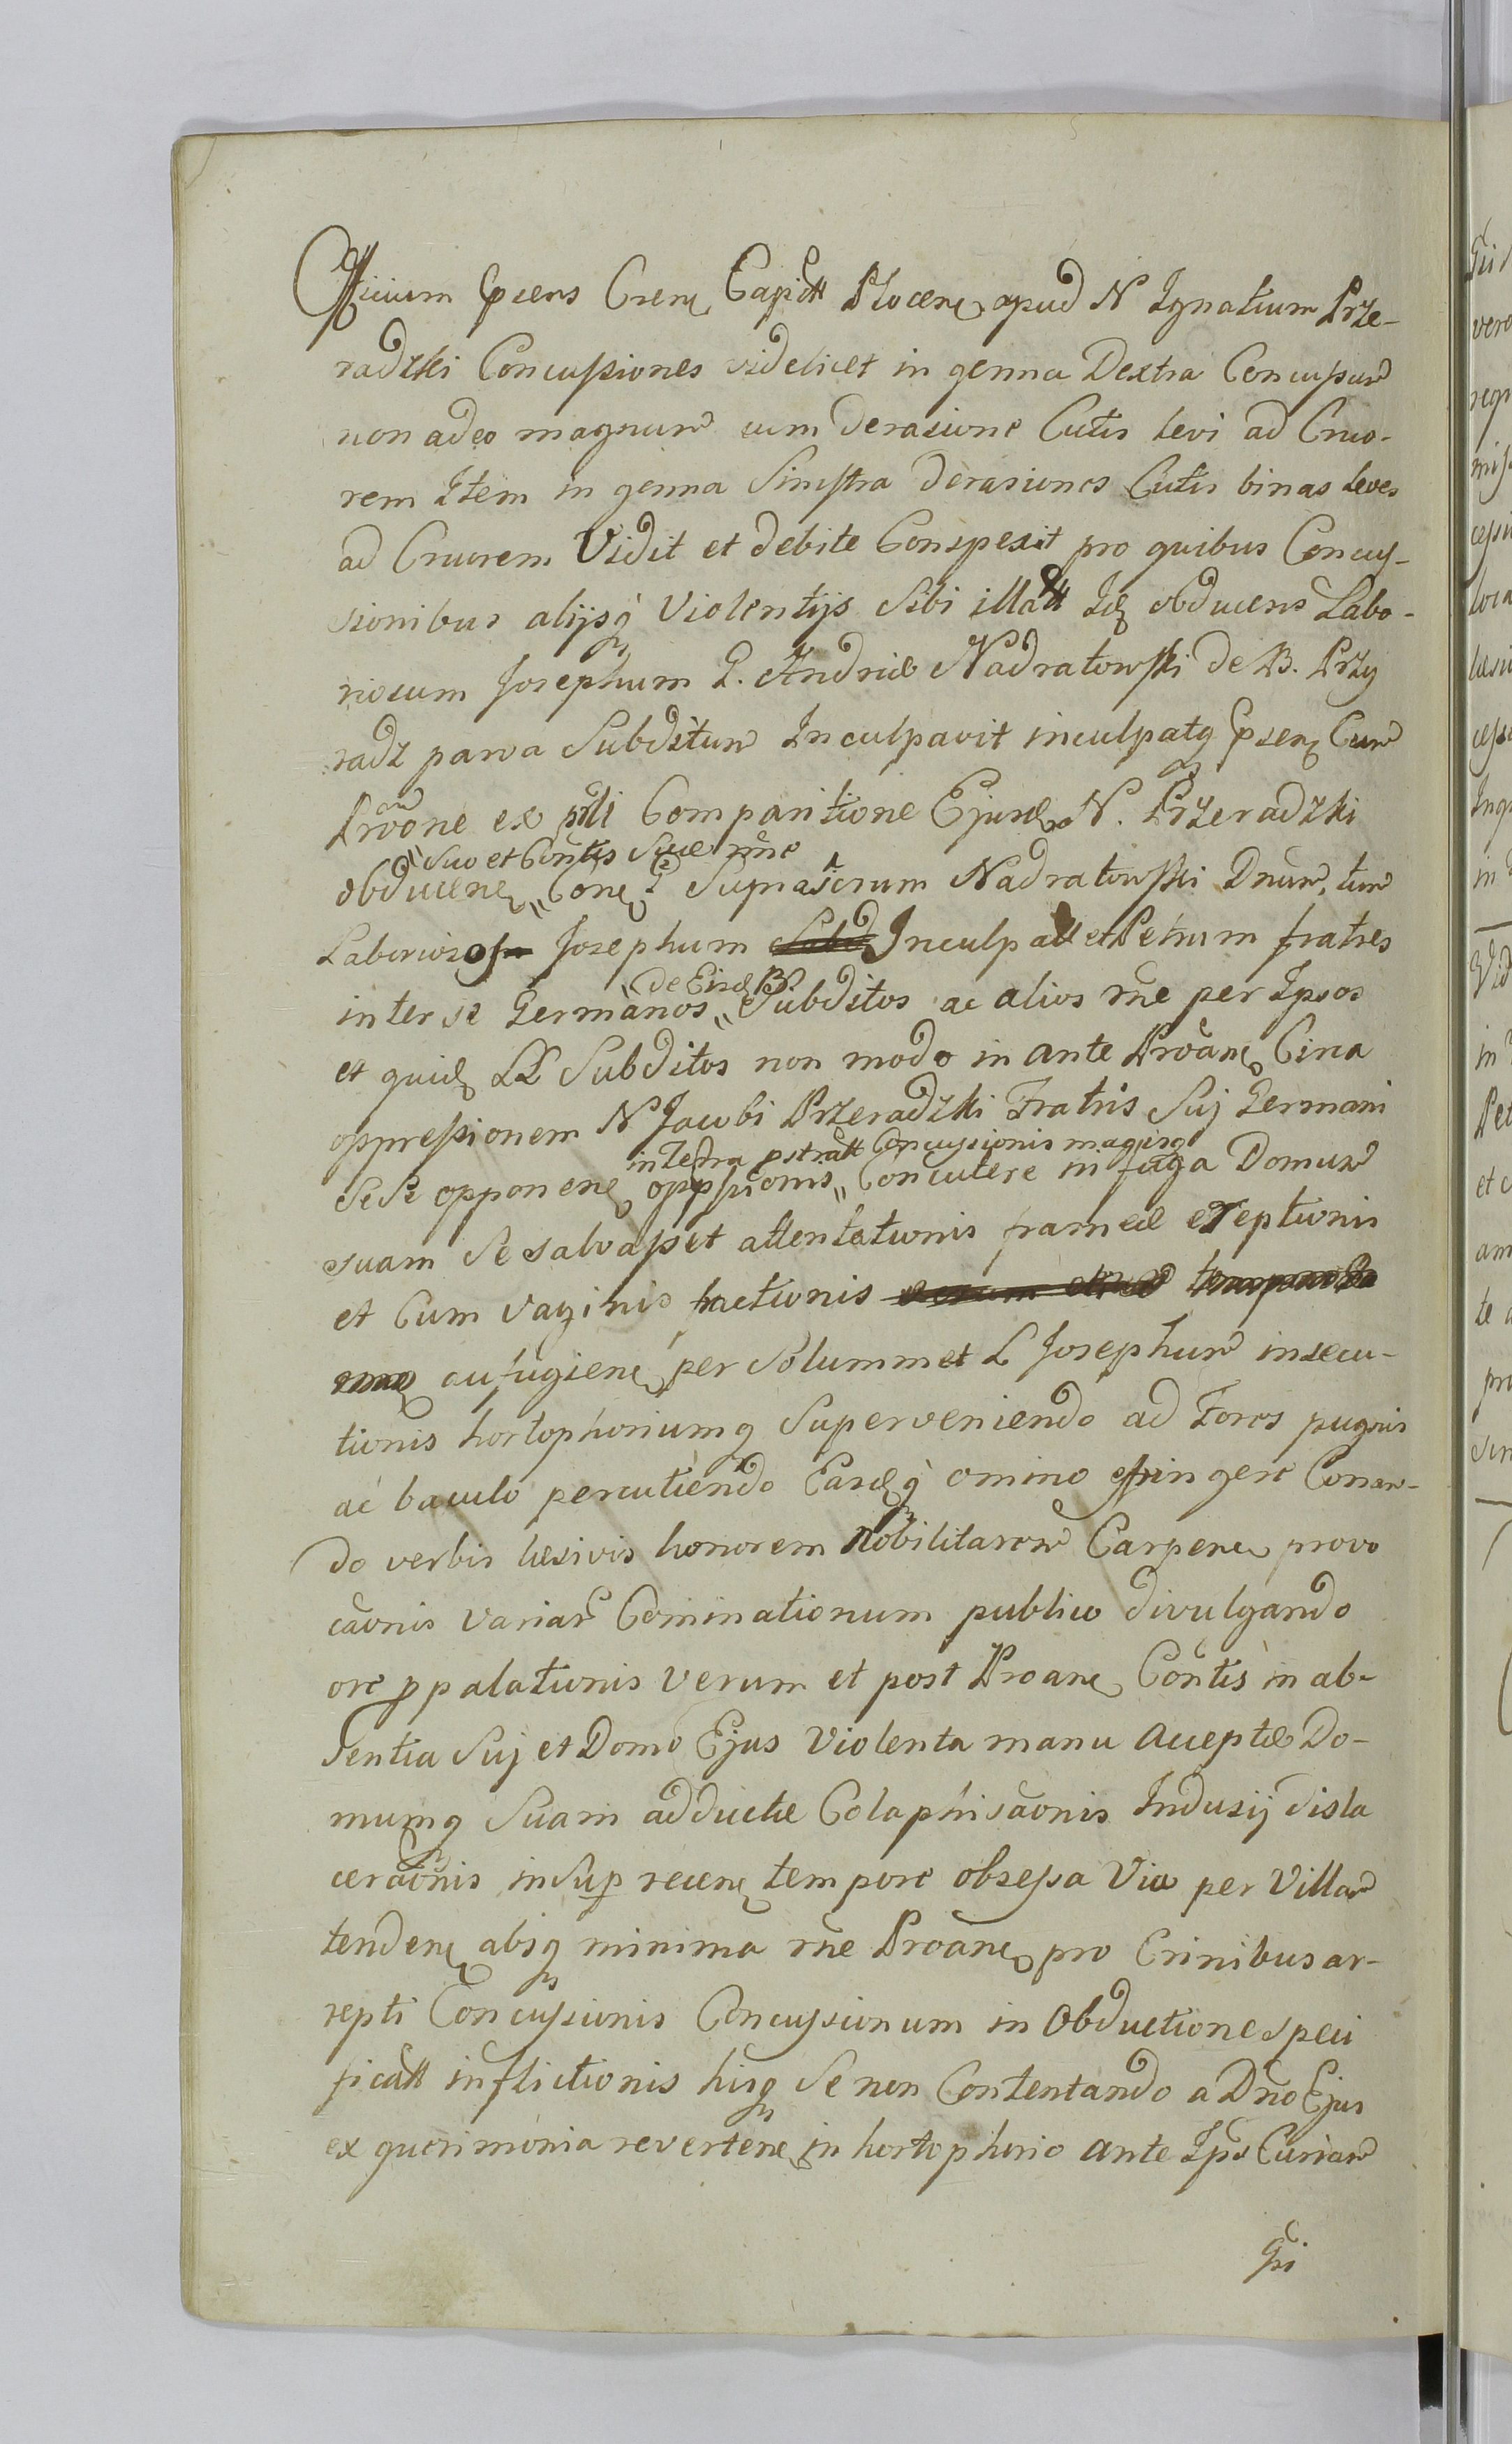 Officium psens Crens Capitt Plocens apud N Ignatium Prze-
radzki Concussiones videlicet in genna Dextra Concussum
non adeo magnum cum derasione Cutis levi ad Cruo-
rem Item in genna Sinistra derasiones Cutis binas leves
ad Cruorem Vidit et debite Conspexit pro quibus Concus-
sionibus alijsq Violentijs Sibi illatt Id obducens Labo-
riosum Josephum G. Andreæ Nadratowski de B. Przy
radz parva Subditum Inculpavit inculpatq psens Cum
Prvone ex Comparitione Ejusd N. Przeradzki
suo et Contis Suæ nne
obducens Cone G Supnascrum Nadratowski Dnum, tum
Laborios Josephum Inculpatt et Petrum fratres
de Eisd B.
inter se Germanos Subditos ac alios nne per Ipsos
et quid LL Subditos non modo in ante Prvane Circa
oppressionem N Jacobi Przeradzki Fratris Suj Germani
intentra pstratt Concussionis magisq
Se Se opponens oppssionis Concutere in fuga Domum
suam Se salvasset attentationis frameæ ereptionis
et Cum vaginis fractionis
aufugiens per Solummet L Josephum insecu-
tionis hortophoriumq Superveniendo ad Fores pugnis
ac baculo percutiendo Easdq omino efringere Conan-
do verbis læsivis honorem Nobilitarem Carpens provo
caonis variar Cominationum publico divulgando
ore ppalationis verum et post Proane Contis in ab-
sentia Suj et Domo Ejus Violenta manu acceptæ Do-
mumq Suam adductæ Colaphisaonis Indusij disla
ceraonis insup recens tempore obsessa Via per Villam
tendens absq minima nne Proane pro Crinibus ar-
repti Concussionis Concussionum in Obductione speci
ficatt inflictionis hisq Se non Contentando a Dno Ejus
ex querimonia revertens in hortophorio ante Ips Curiam